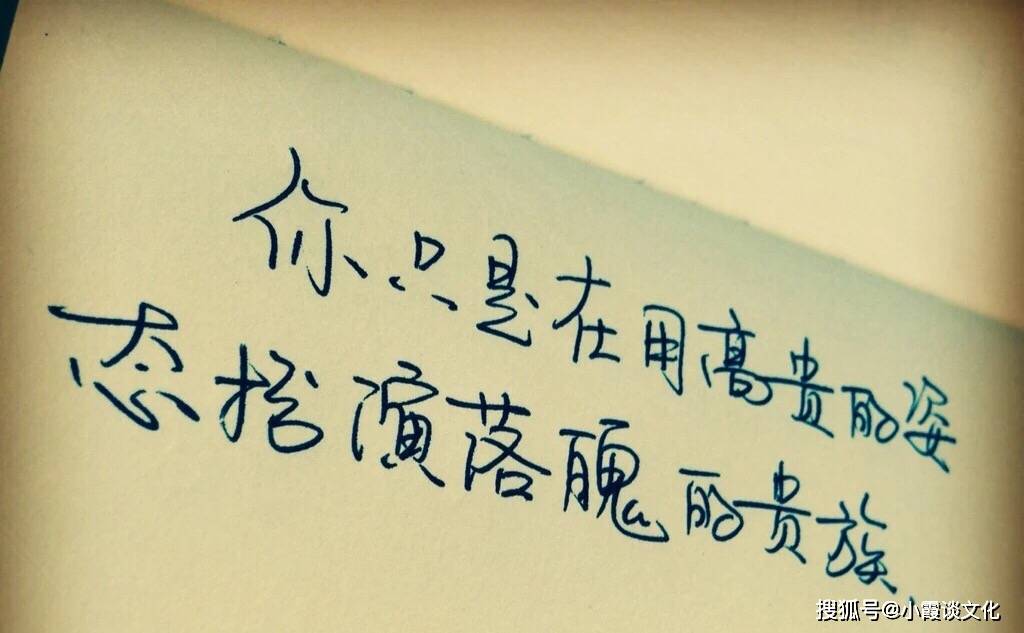 你只是在用高贵的姿
态扮演落魄的贵族、
搜狐号@小霞谈文化